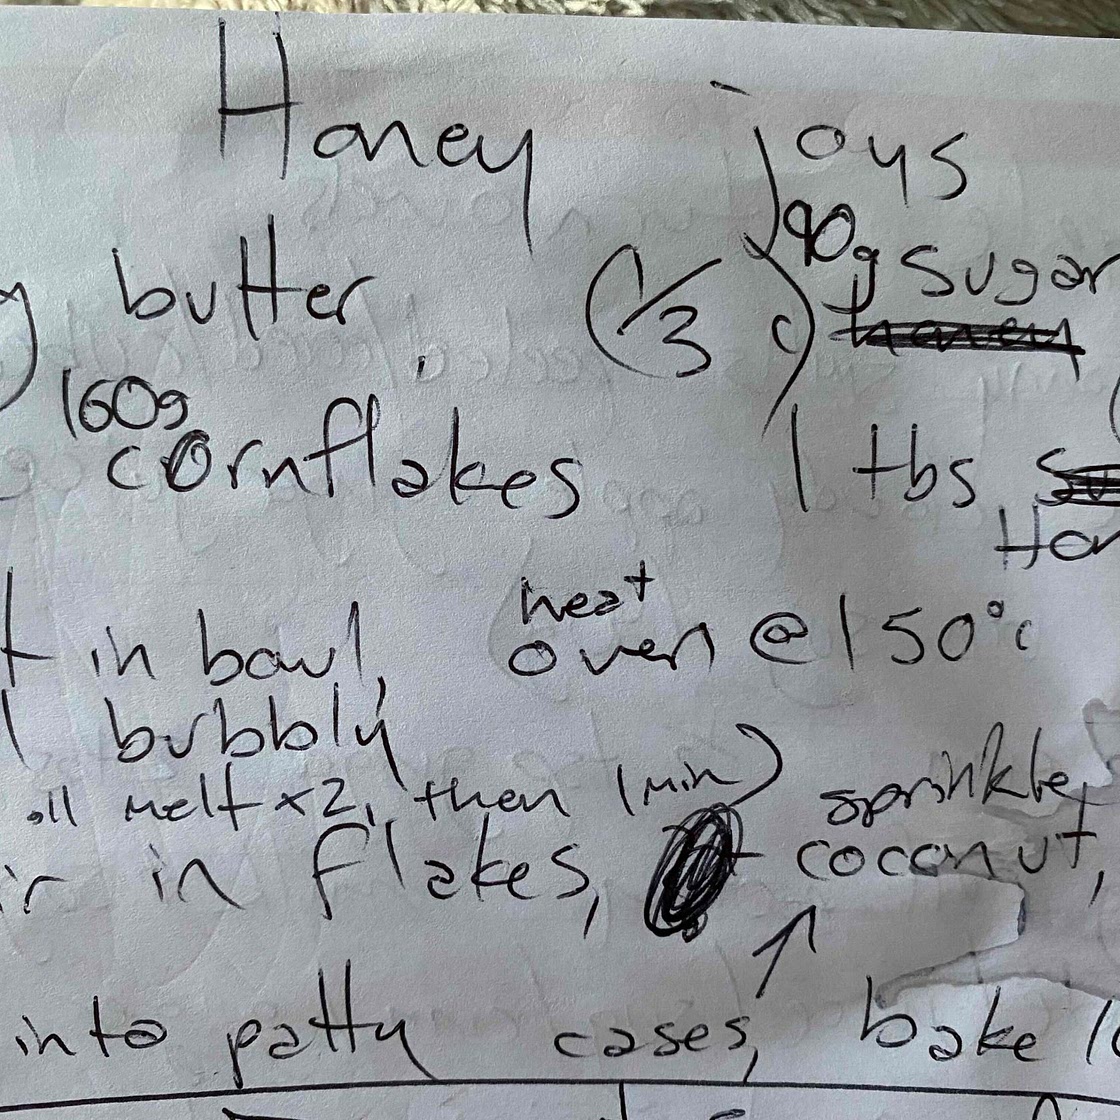 Honey joys
90g sugar
g butter (1/3 c)
160g
cornflakes 1 tbs
heat
t in bowl, oven @ 150°c
l bubbly
oll melt x2, then 1 min) sprinkle
ir in flakes, + coconut,
↑
into patty cases, bake